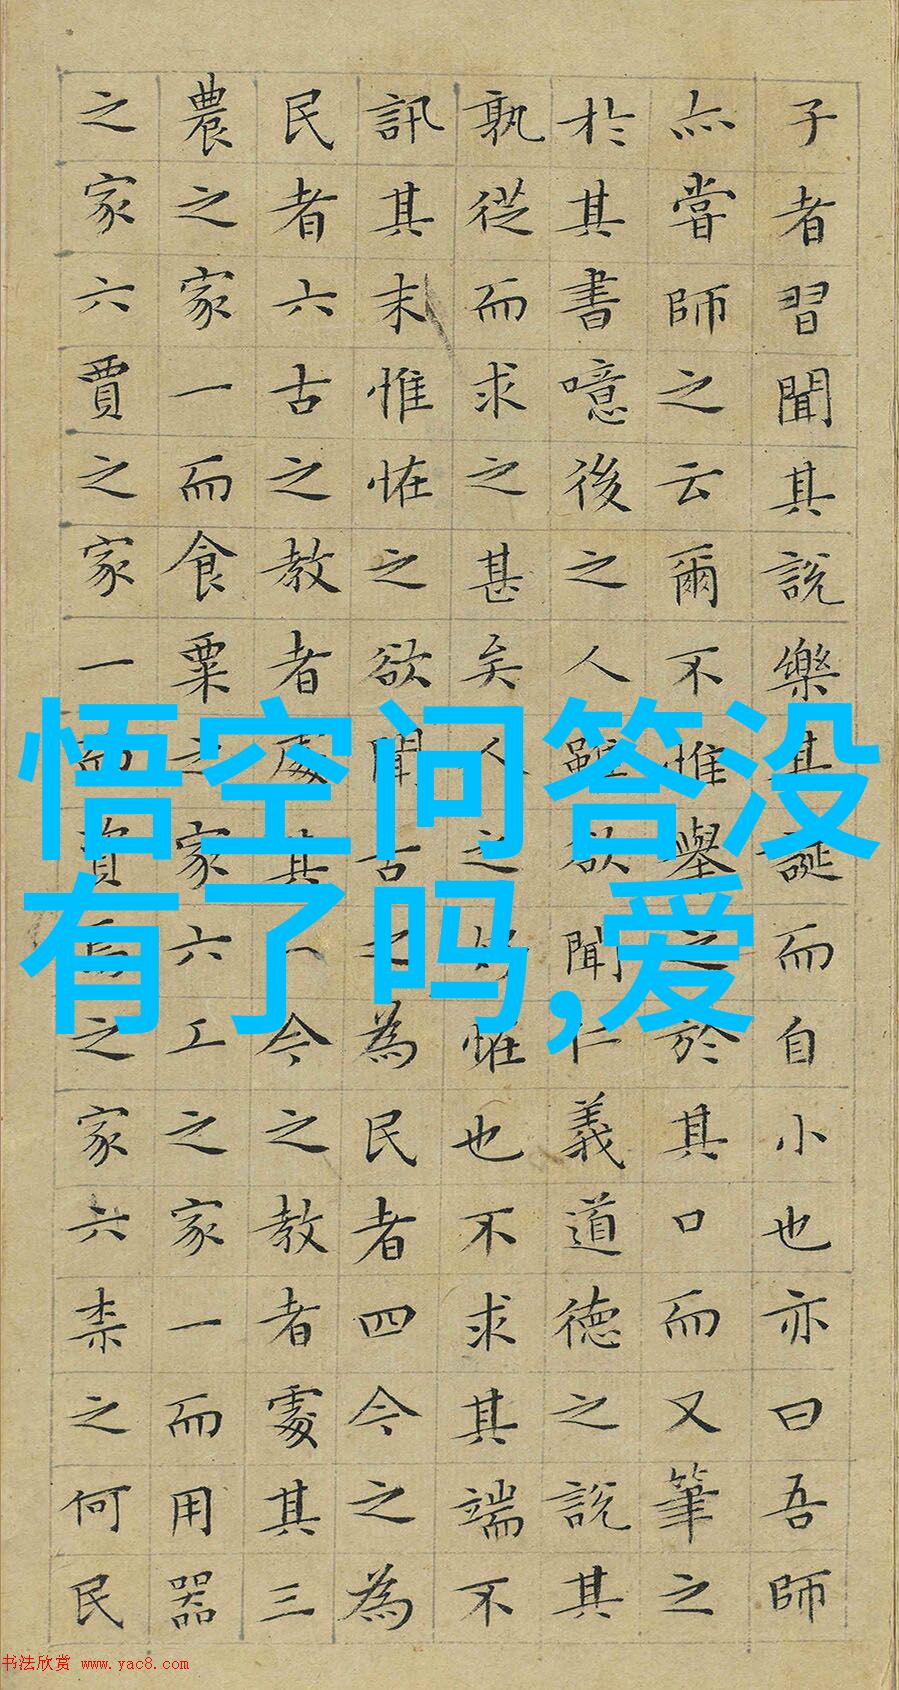 悟空问答没
有了吗,爱
子者習聞其說樂其誕而自小也亦曰吾師
亦嘗師之云爾不惟舉之於其口而又筆之
於其書噫後之人雖欲聞仁義道德之說其
孰從而求之甚矣人之好恠也不求其端不
訊其末惟恠之欲聞古之為民者四今之為
民者六古之教者處其一今之教者處其三
農之家一而食粟之家六工之家一而用器
之家六賈之家一而資焉之家六柰之何民
书法欣赏 www.yac8.com